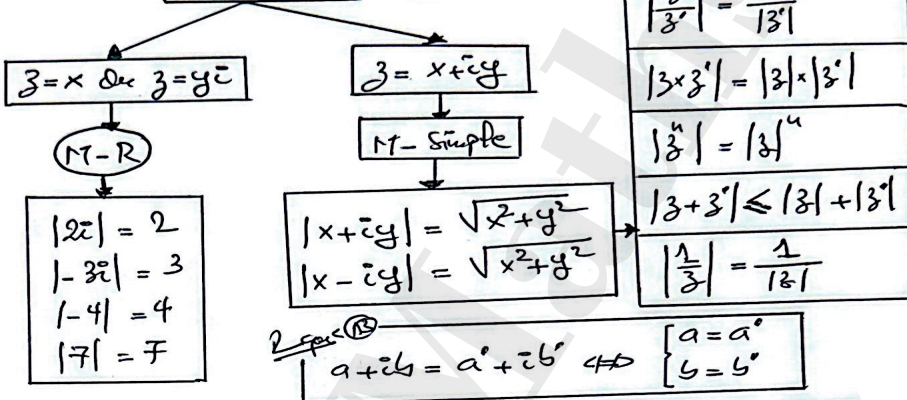 z = x ou z = yi
M-R
|2i| = 2
|-3i| = 3
|-4| = 4
|7| = 7
z = x+iy
M-Simple
|x+iy| = √x²+y²
|x-iy| = √x²+y²
|z/z'| = /|z'|
|z×z'| = |z|×|z'|
|zⁿ| = |z|ⁿ
|z+z'| ≤ |z|+|z'|
|1/z| = 1/|z|
a+ib = a'+ib' ⟺ { a = a'
b = b'